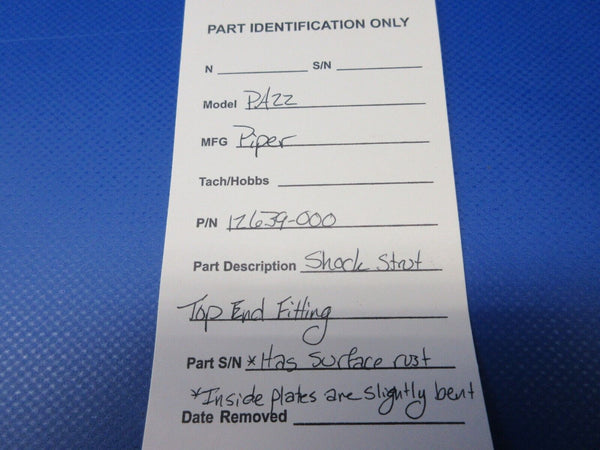 PART IDENTIFICATION ONLY
N S/N
Model PA22
MFG Piper
Tach/Hobbs
P/N 12639-000
Part Description Shock Strut
Top End Fitting
Part S/N *Has surface rust
*Inside plates are slightly bent
Date Removed